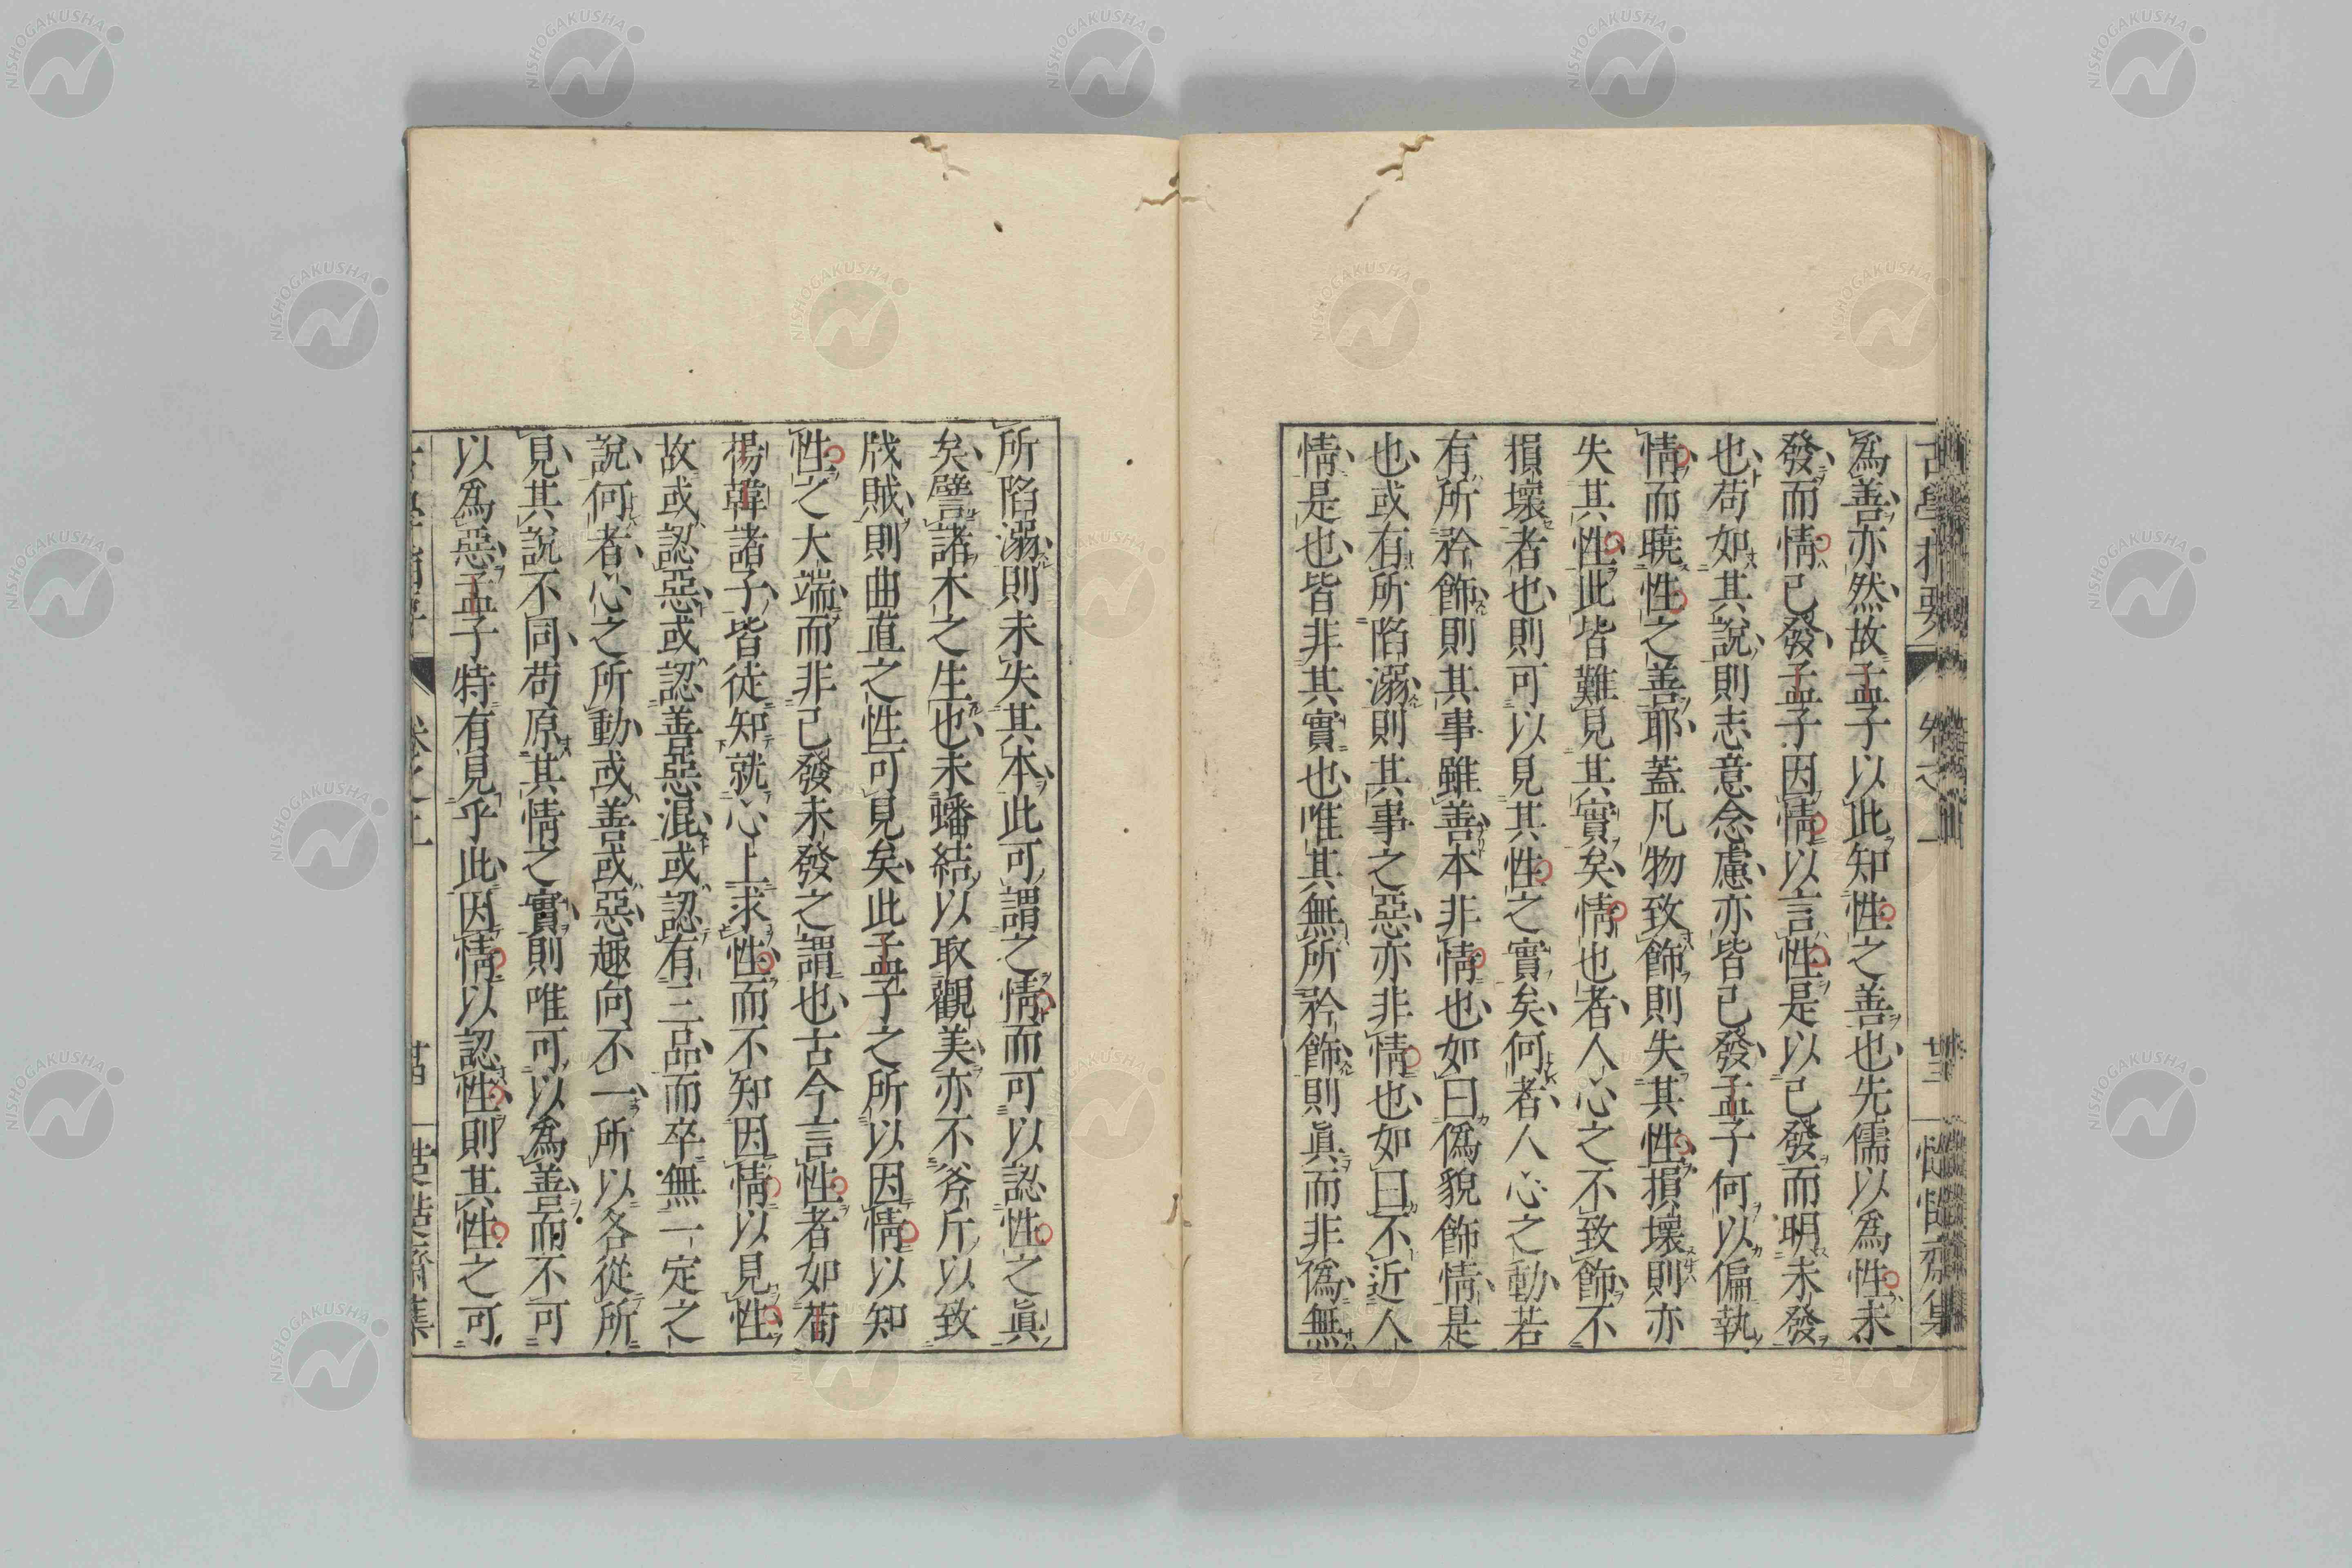 爲善亦然故孟子以此知性之善也先儒以爲性未
發而情已發孟子因情以言性是以已發而明未發
也苟如其說則志意念慮亦皆已發孟子何以偏執
情而曉性之善耶蓋凡物致飾則失其性損壞則亦
失其性此皆難見其實矣情也者人心之不致飾不
損壞者也則可以見其性之實矣何者人心之動若
有所矜飾則其事雖善本非情也如曰僞貌飾情是
也或有所陷溺則其事之惡亦非情也如曰不近人
情是也皆非其實也唯其無所矜飾則眞而非僞無
所陷溺則未失其本此可謂之情而可以認性之眞
矣譬諸木之生也未蟠結以取觀美亦不斧斤以致
戕賊則曲直之性可見矣此孟子之所以因情以知
性之大端而非已發未發之謂也古今言性者如荀
楊韓諸子皆徒知就心上求性而不知因情以見性
故或認惡或認善惡混或認有三品而卒無一定之
說何者心之所動或善或惡趣向不一所以各從所
見其說不同苟原其情之實則唯可以爲善而不可
以爲惡孟子特有見乎此因情以認性則其性之可
古學指要
卷之上
廿三
慥慥齋集
卷之上
廿四
慥慥齋集
NISHOGAKUSHA